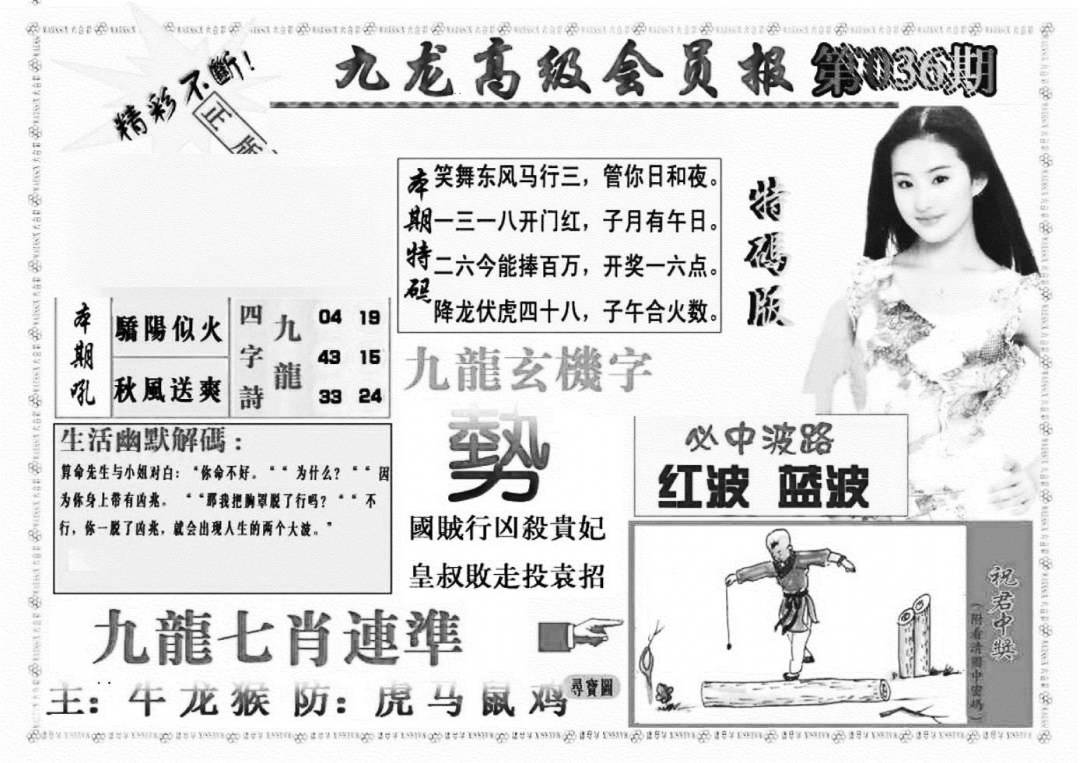 精彩不斷!
正版
九龙高级会员报 第036期
本期特码
笑舞东风马行三，管你日和夜。
一三一八开门红，子月有午日。
二六今能捧百万，开奖一六点。
降龙伏虎四十八，子午合火数。
特碼版
本期吼
驕陽似火
秋風送爽
四字詩
九龍
04 19
43 15
33 24
九龍玄機字
勢
國賊行凶殺貴妃
皇叔敗走投袁招
生活幽默解碼：
算命先生与小姐对白：“你命不好。““为什么？““因
为你身上带有凶兆。““那我把胸罩脱了行吗？““不
行，你一脱了凶兆，就会出现人生的两个大波。”
必中波路
红波 蓝波
九龍七肖連準
主：牛龙猴 防：虎马鼠鸡
尋寶圖
祝君中獎
（附看清圖中密碼）